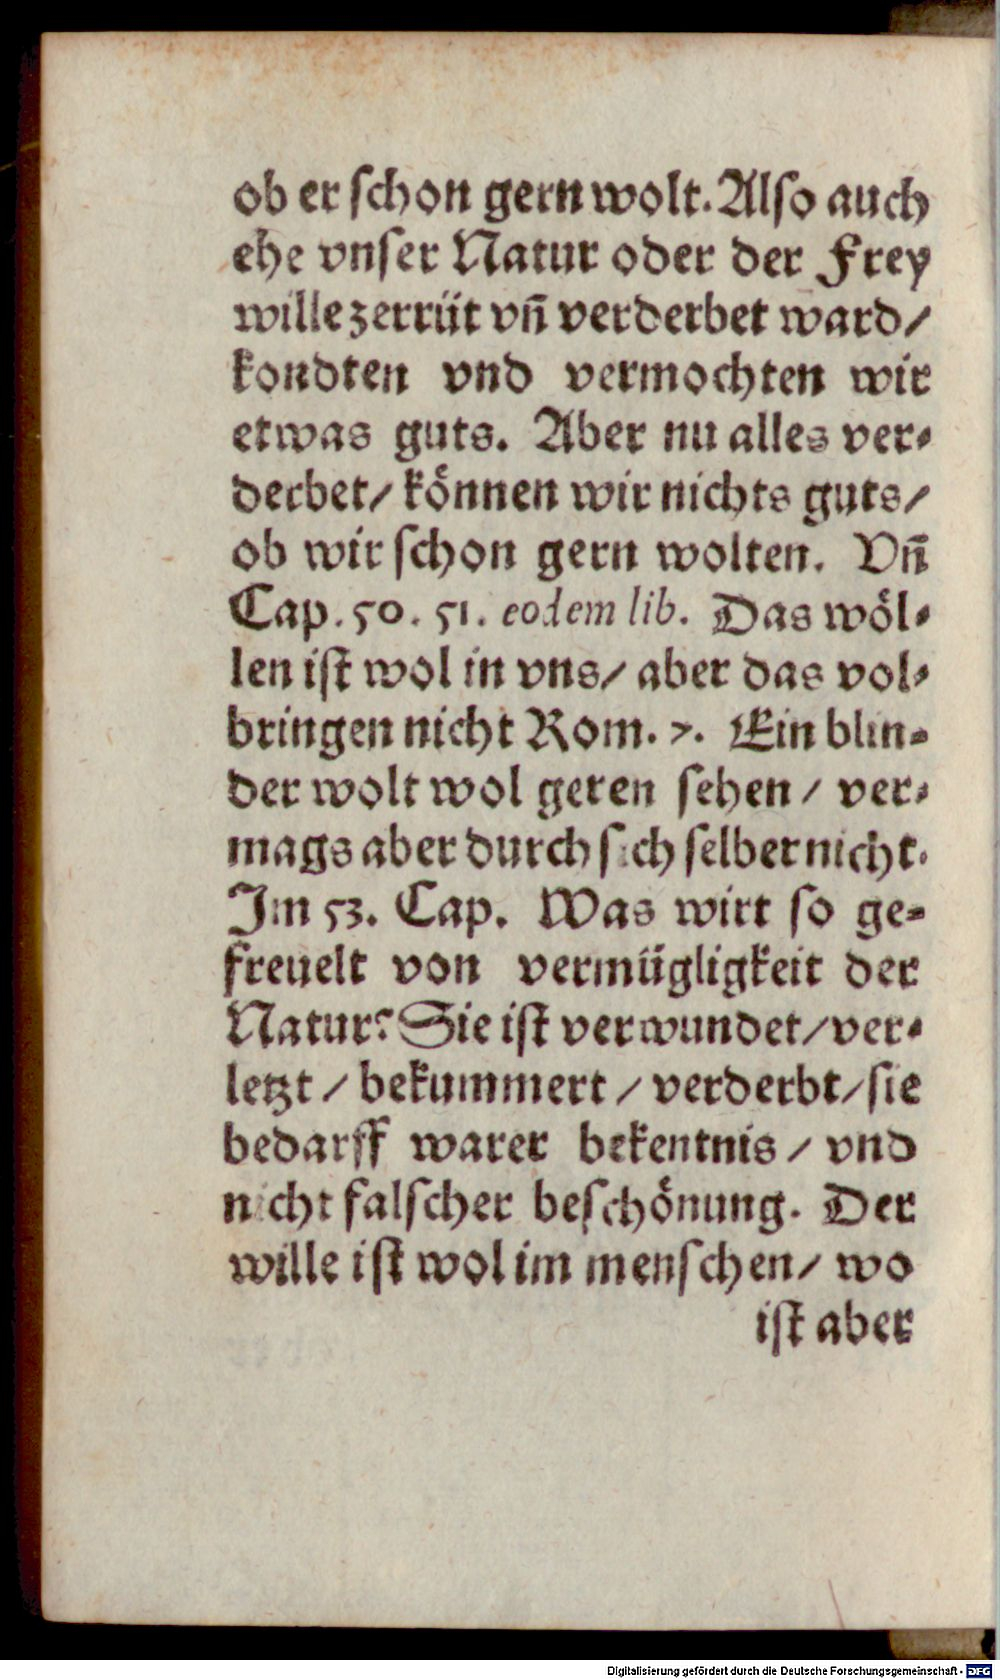 ob er schon gern wolt. Also auch
ehe vnser Natur oder der Frey
wille zerrüt vn̄ verderbet ward/
kondten vnd vermochten wir
etwas guts. Aber nu alles ver⸗
derbet/ können wir nichts guts/
ob wir schon gern wolten. Vn̄
Cap. 50. 51. eodem lib. Das wöl⸗
len ist wol in vns/ aber das vol⸗
bringen nicht Rom. 7. Ein blin⸗
der wolt wol geren sehen / ver⸗
mags aber durch sich selber nicht.
Im 53. Cap. Was wirt so ge⸗
freuelt von vermügligkeit der
Natur? Sie ist verwundet/ ver⸗
letzt / bekummert / verderbt/ sie
bedarff warer bekentnis / vnd
nicht falscher beschönung. Der
wille ist wol im menschen/ wo
ist aber
Digitalisierung gefördert durch die Deutsche Forschungsgemeinschaft - DFG